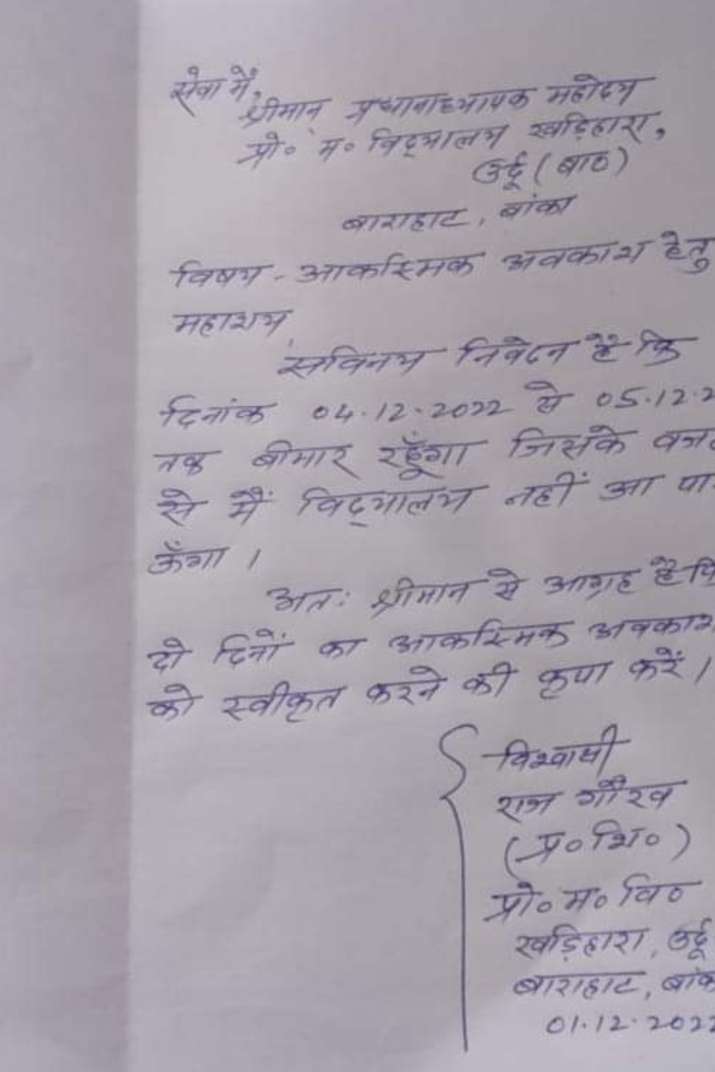 सेवा में,
श्रीमान प्रधानाध्यापक महोदय
प्रो० म० विद्यालय खड़िहारा,
उर्दू (बाठ)
बाराहाट, बांका
विषय - आकस्मिक अवकाश हेतु
महाशय
सविनय निवेदन है कि
दिनांक 04.12.2022 से 05.12.2
तक बीमार रहूँगा जिसके वज
से मैं विद्यालय नहीं आ पा
ऊँगा ।
अतः श्रीमान से आग्रह है कि
दो दिनों का आकस्मिक अवकाश
को स्वीकृत करने की कृपा करें ।
विश्वासी
राज गौरव
(प्र० शि०)
प्रो० म० वि०
खड़िहारा, उर्दू
बाराहाट, बांक
01.12.2022